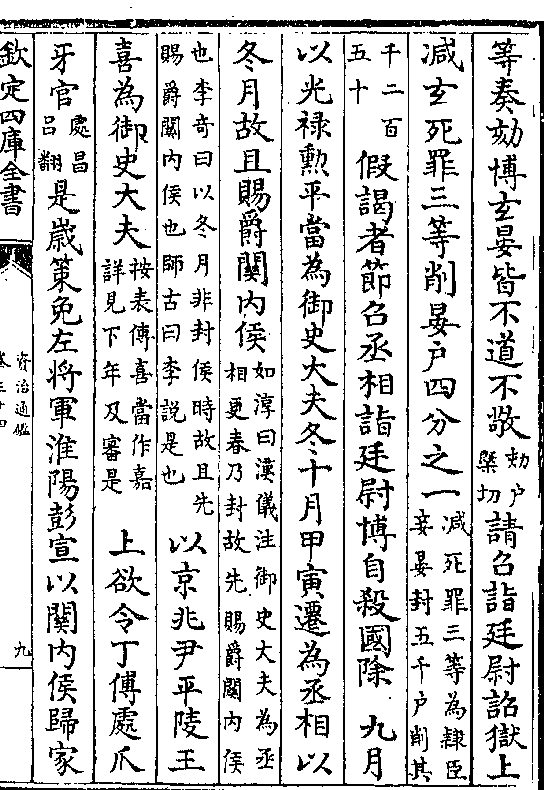 等奏劾博玄晏皆不道不敬劾户槩切請召詣廷尉詔獄上
减玄死罪三等削晏户四分之一减死罪三等為隷臣妾晏封五千户削其
千二百五十假謁者節召丞相詣廷尉博自殺國除 九月
以光禄勲平當為御史大夫冬十月甲寅遷為丞相以
冬月故且賜爵闗内侯如淳曰漢儀注御史大夫為丞相更春乃封故先賜爵闗内侯
也李奇曰以冬月非封侯時故且先賜爵闗内侯也師古曰李説是也 以京兆尹平陵王
喜為御史大夫按表傳喜當作嘉詳見下年及審是 上欲令丁傅處爪
牙官處昌吕翻是歲策免左将軍淮陽彭宣以闗内侯歸家
欽定四庫全書
資治通鑑
卷三十四
九